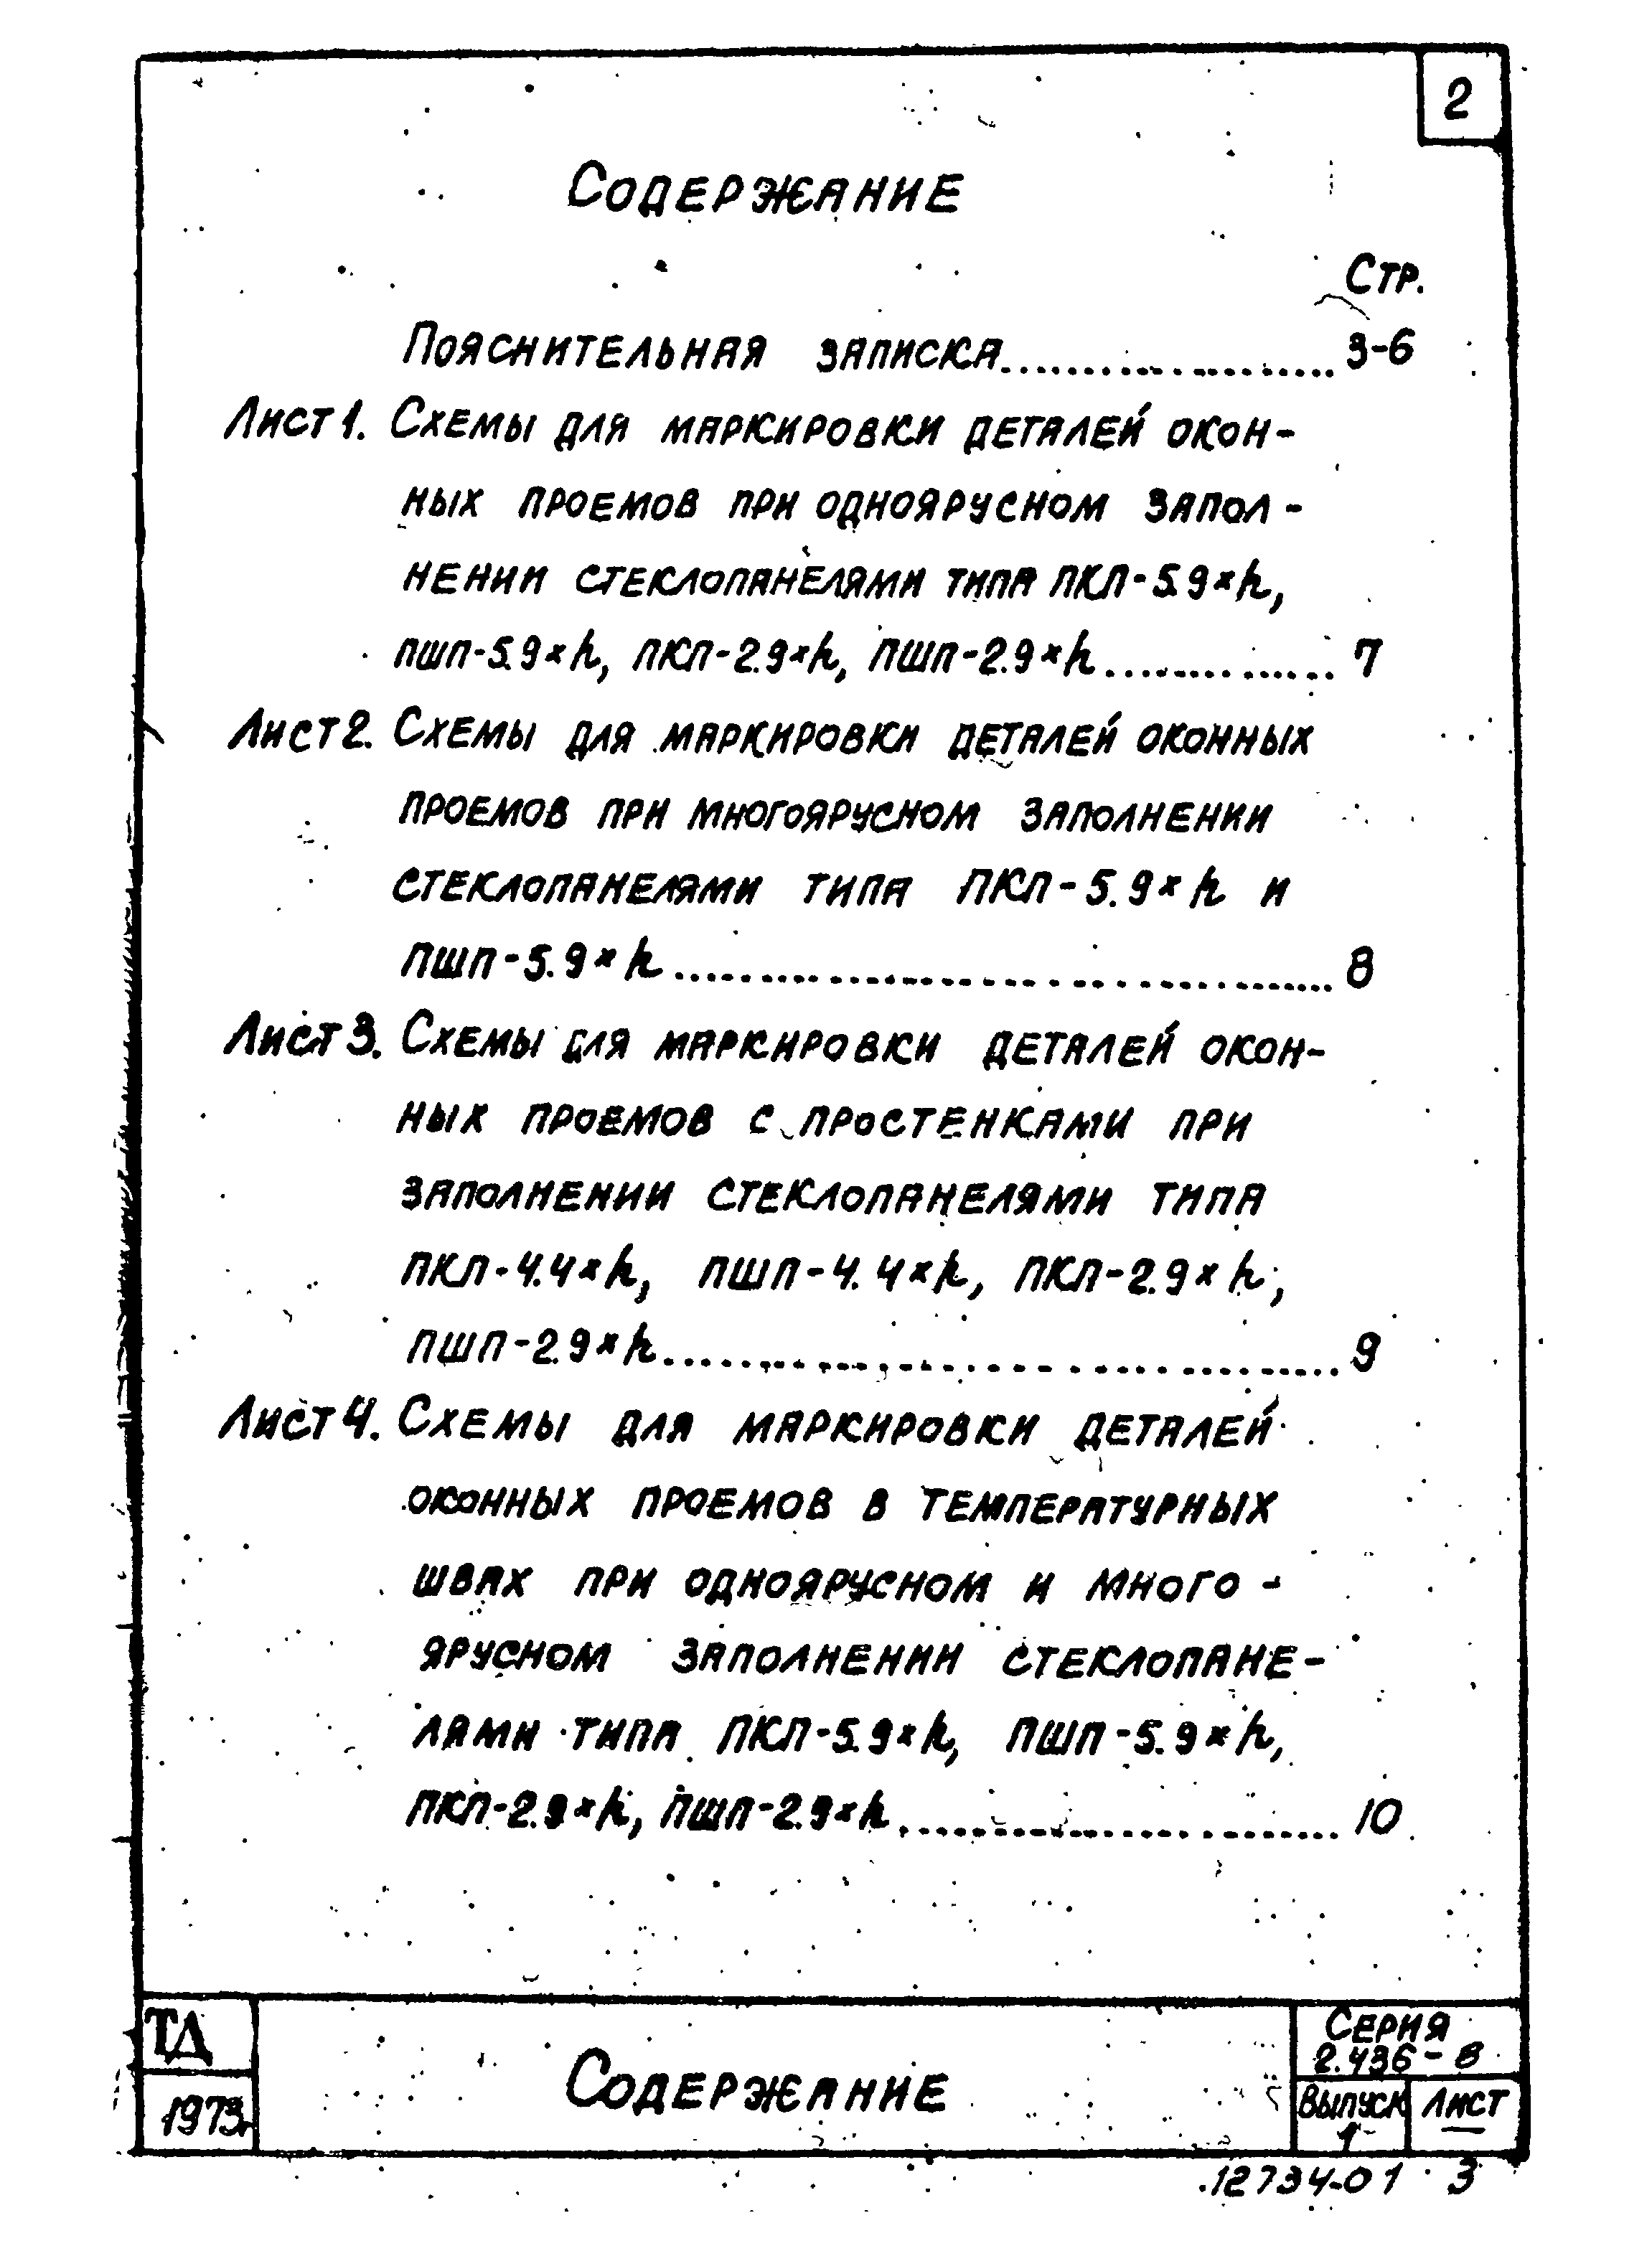 2
Содержание
Стр.
Пояснительная записка..................... 3-6
Лист 1. Схемы для маркировки деталей окон-
ных проемов при одноярусном запол-
нении стеклопанелями типа ПКП-5.9×h,
ПШП-5.9×h, ПКП-2.9×h, ПШП-2.9×h.............. 7
Лист 2. Схемы для маркировки деталей оконных
проемов при многоярусном заполнении
стеклопанелями типа ПКП-5.9×h и
ПШП-5.9×h................................ 8
Лист 3. Схемы для маркировки деталей окон-
ных проемов с простенками при
заполнении стеклопанелями типа
ПКП-4.4×h, ПШП-4.4×h, ПКП-2.9×h,
ПШП-2.9×h................................ 9
Лист 4. Схемы для маркировки деталей
оконных проемов в температурных
швах при одноярусном и много-
ярусном заполнении стеклопане-
лями типа ПКП-5.9×h, ПШП-5.9×h,
ПКП-2.9×h, ПШП-2.9×h........................ 10
ТД
1973г
Содержание
Серия
2.436-8
Выпуск
1
Лист
—
12734-01 3